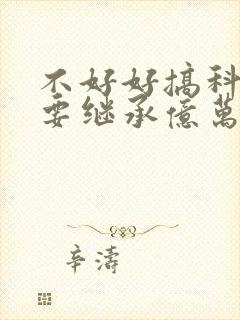 不好好搞科
要继承億萬
辛濤